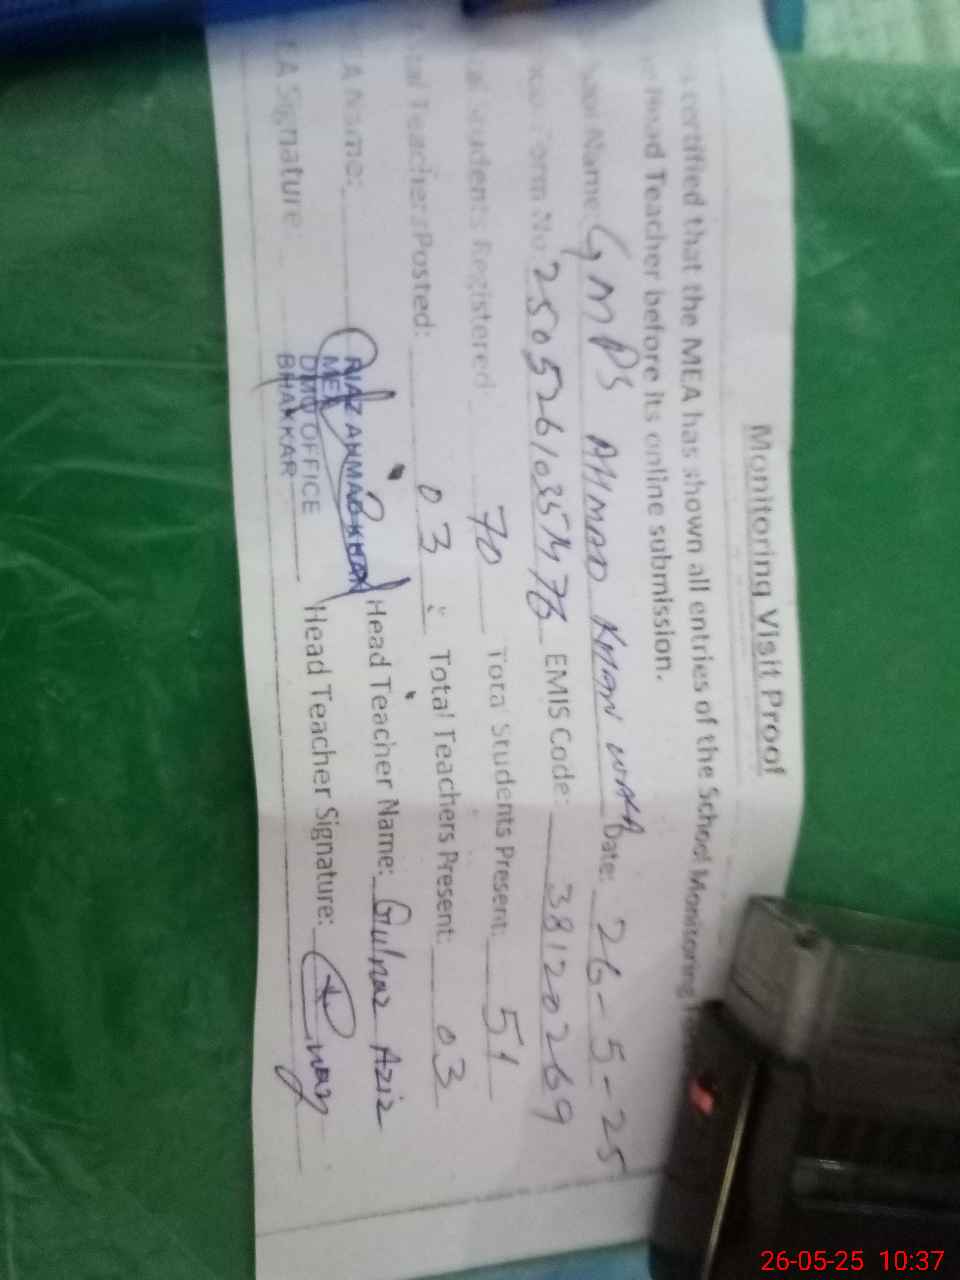 Monitoring Visit Proof
certified that the MEA has shown all entries of the School Monitoring
Head Teacher before its online submission.
Name: GMPS AHMAD KHAN WALA Date: 26-5-25
Form No. EMIS Code: 38120269
Students Registered: 70 Total Students Present: 51
Teachers Posted: 03 Total Teachers Present: 03
A Name: RIAZ AHMAD KHAN Head Teacher Name: Gulnaz Aziz
MEA
DMO OFFICE
BHAKKAR
A Signature: Head Teacher Signature:
26-05-25 10:37